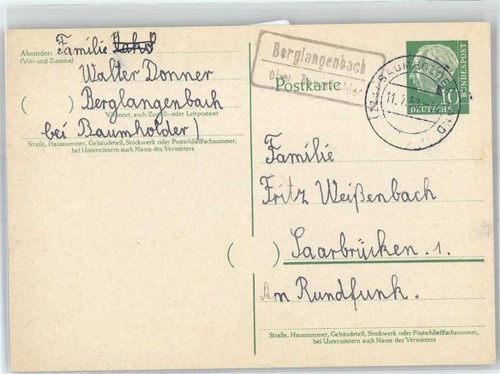 Absender: Familie
(Vor- und Zuname)
Walter Donner
( ) Berglangenbach
Wohnort, auch Zustell- oder Leitpostamt
bei Baumholder)
Straße, Hausnummer, Gebäudeteil, Stockwerk oder Postschließfachnummer,
bei Untermietern auch Name des Vermieters
Berglangenbach
über
Postkarte
BAUMHOLDER
10
DEUTSCHE
BUNDESPOST
Familie
Fritz Weißenbach
( )
Saarbrücken. 1.
Am Rundfunk.
Straße, Hausnummer, Gebäudeteil, Stockwerk oder Postschließfachnummer,
bei Untermietern auch Name des Vermieters